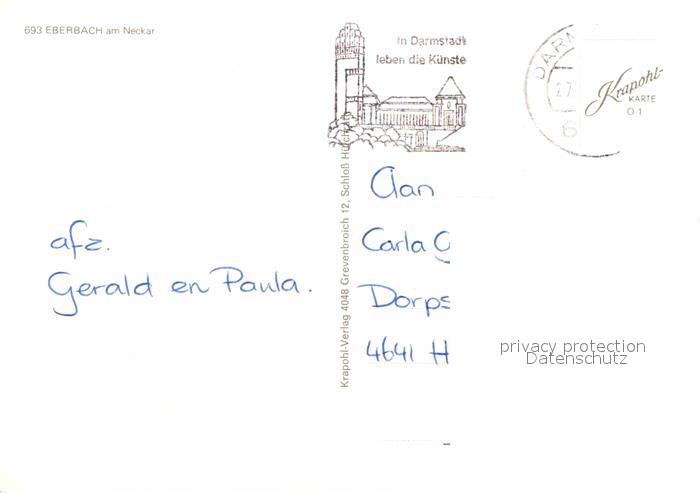 693 EBERBACH am Neckar
In Darmstadt
leben die Künste
DARM
27
6
Krapohl-
KARTE
01
afz.
Gerald en Paula.
Krapohl-Verlag 4048 Grevenbroich 12, Schloß
Aan
Carla G
Dorps
4641 H
privacy protection
Datenschutz